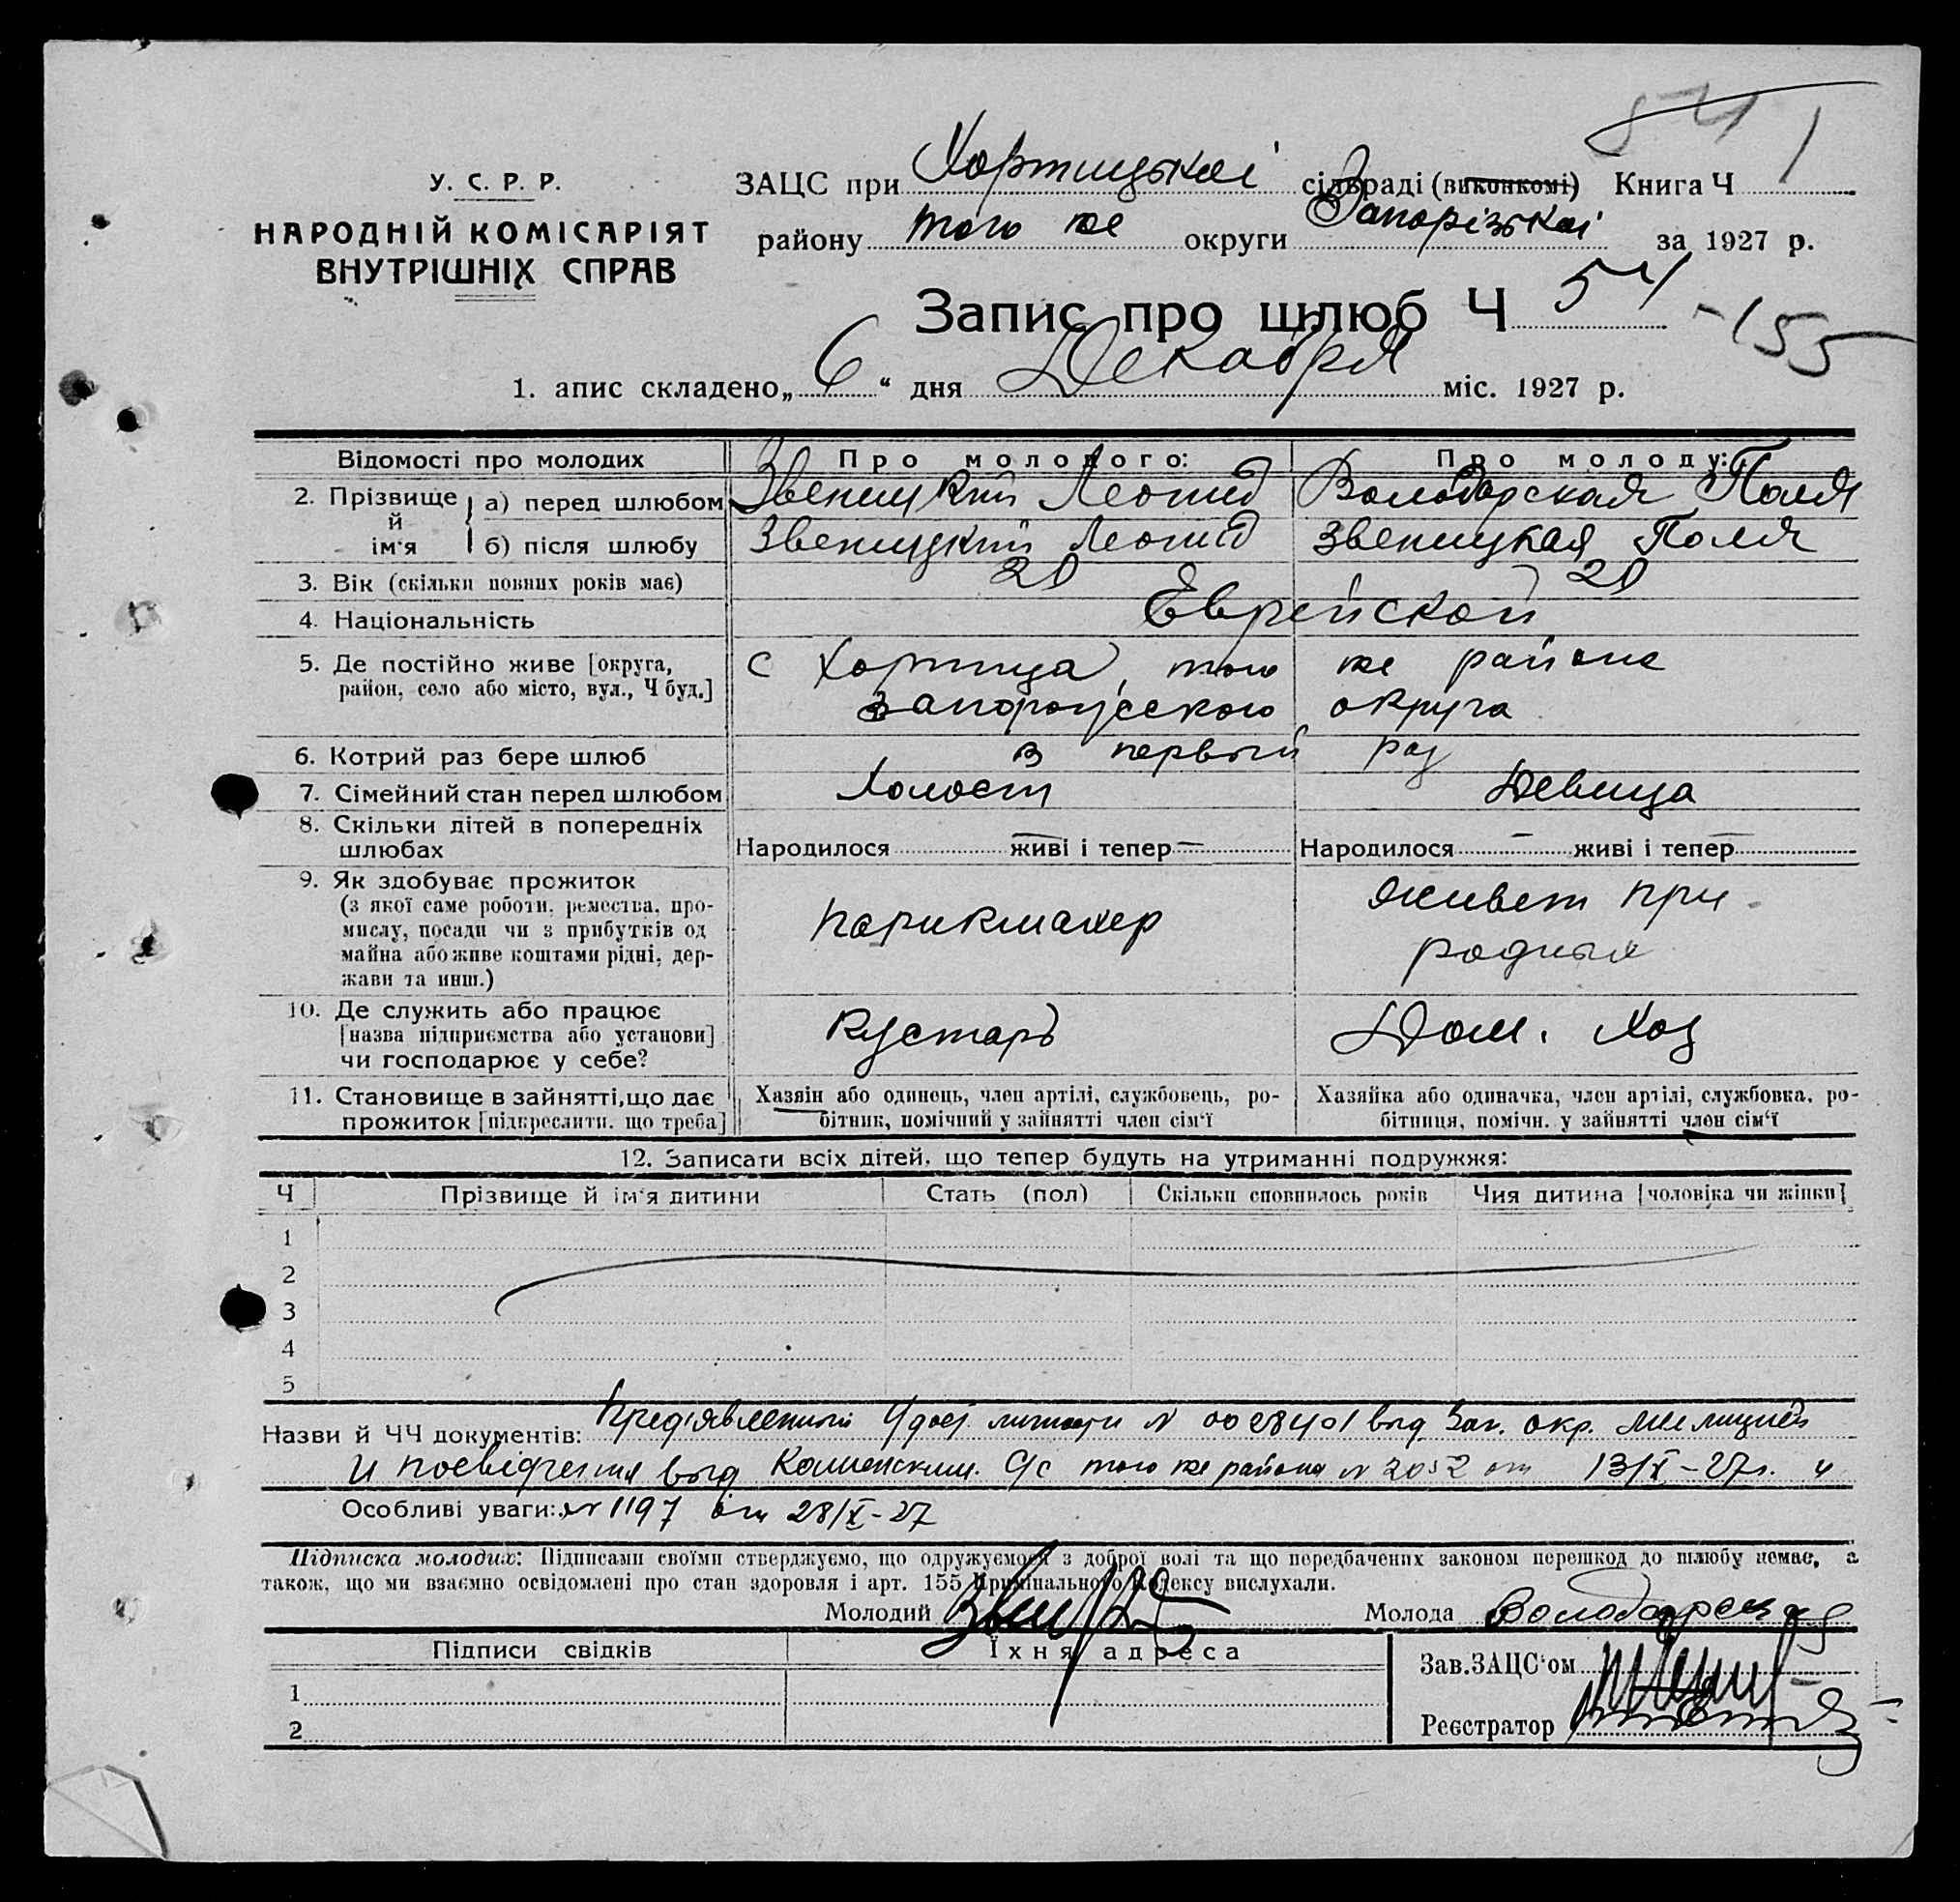 541
У. С. Р. Р.
НАРОДНІЙ КОМІСАРІЯТ
ВНУТРІШНІХ СПРАВ
ЗАЦС при Хортицької сільраді (виконкомі) Книга Ч 1
району того же округи Запорізької за 1927 р.
Запис про шлюб Ч 54 -155
1. апис складено „6“ дня Декабря міс. 1927 р.
Відомості про молодих Про молодого: Про молоду:
2. Прізвище й ім‘я
а) перед шлюбом Звеницкий Леонид Володарская Поля
б) після шлюбу Звеницкий Леонид Звеницкая Поля
3. Вік (скільки повних років має) 20 20
4. Національність Еврейской
5. Де постійно живе [округа, с Хортица, того же района
район, село або місто, вул., Ч буд.] Запорожского округа
6. Котрий раз бере шлюб в первый раз
7. Сімейний стан перед шлюбом Холост Девица
8. Скільки дітей в попередніх
шлюбах Народилося — живі і тепер — Народилося — живі і тепер —
9. Як здобуває прожиток
(з якої саме роботи, ремества, про-
мислу, посади чи з прибутків од
майна або живе коштами рідні, дер-
жави та инш.)
парикмахер
живет при
родных
10. Де служить або працює
[назва підприємства або установи]
чи господарює у себе?
Кустарь Дом. Хоз
11. Становище в зайнятті, що дає
прожиток [підкреслити. що треба]
Хазяїн або одинець, член артілі, службовець, ро-
бітник, помічний у зайнятті член сім‘ї
Хазяйка або одиначка, член артілі, службовка, ро-
бітниця, помічн. у зайнятті член сім‘ї
12. Записати всіх дітей, що тепер будуть на утриманні подружжя:
Ч Прізвище й ім‘я дитини Стать (пол) Скільки сповнилось років Чия дитина [чоловіка чи жінки]
1
2
3
4
5
Назви й ЧЧ документів: Удост личности N 0028401 выд Зап. окр. милицией
и посвідчення выд с/с того же района N 2052 от 13/X-27г. и
Особливі уваги: N 1197 від 28/X-27
Підписка молодих: Підписами своїми стверджуємо, що одружуємося з доброї волі та що передбачених законом перешкод до шлюбу немає, а
також, що ми взаємно освідомлені про стан здоровля і арт. 155 Кримінального Кодексу вислухали.
Молодий Молода Володарская
Підписи свідків Їхня адреса
Зав.ЗАЦС‘ом
1
Реєстратор
2